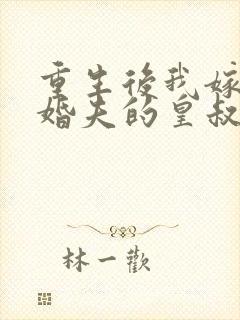 重生後我嫁
婚夫的皇叔
林一歡